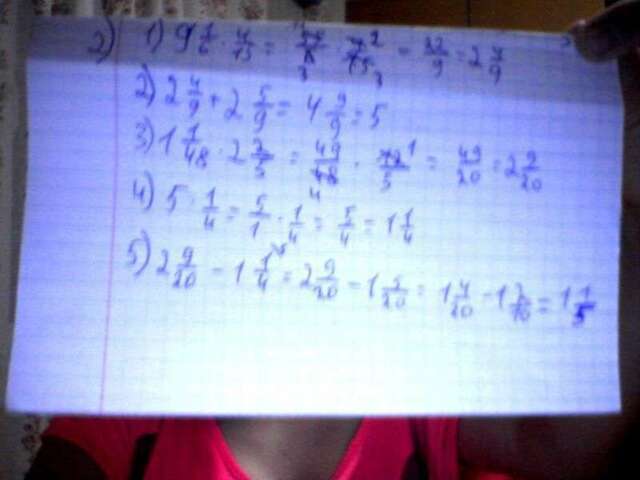 2) 1) 9 1/6 · 4/15 = 55/6 · 4/15 = 22/9 = 2 4/9
2) 2 4/9 + 2 5/9 = 4 9/9 = 5
3) 1 1/48 · 2 2/5 = 49/48 · 12/5 = 49/20 = 2 9/20
4) 5 · 1/4 = 5/1 · 1/4 = 5/4 = 1 1/4
5) 2 9/20 - 1 1/4 = 2 9/20 - 1 5/20 = 1 4/20 = 1 2/10 = 1 1/5